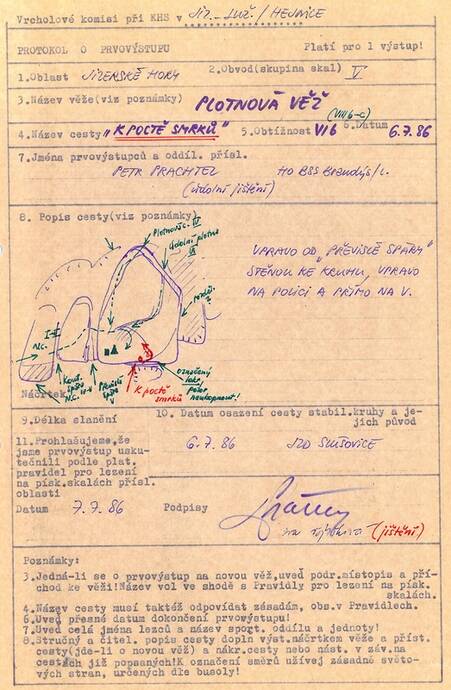 Vrcholové komisi při KHS v JIZ. LUŽ./HEJNICE
PROTOKOL O PRVOVÝSTUPU Platí pro 1 výstup!
1.Oblast JIZERSKÉ HORY 2.Obvod(skupina skal) V
3.Název věže(viz poznámky) PLOTNOVÁ VĚŽ
(VIIIb-c)
4.Název cesty "K POCTĚ SMRKŮ" 5.Obtížnost VIIb 6.Datum 6.7.86
7.Jména prvovýstupců a oddíl. přísl.
PETR PRACHTEL HO BSS Brandýs/L.
(údolní jištění)
8. Popis cesty(viz poznámky)
VPRAVO OD "PŘEVISLÉ SPÁRY"
STĚNOU KE KRUHU, VPRAVO
NA POLICI A PŘÍMO NA V.
Údolní plotna
N.C.
I-II
K poctě
smrků
Náčrtek
9.Délka slanění
10. Datum osazení cesty stabil.kruhy a je-
jich původ
6.7.86 JZD SLUŠOVICE
11.Prohlašujeme,že
jsme prvovýstup usku-
tečnili podle plat.
pravidel pro lezení
na písk.skalách přísl.
oblasti
Datum 7.7.86 Podpisy
(jištění)
Poznámky:
3.Jedná-li se o prvovýstup na novou věž,uveď podr.místopis a pří-
chod ke věži!Název vol ve shodě s Pravidly pro lezení na písk.
skalách.
4.Název cesty musí taktéž odpovídat zásadám, obs.v Pravidlech.
6.Uveď přesné datum dokončení prvovýstupu!
7.Uveď celá jména lezců a název sport. oddílu a jednoty!
8.Stručný a čitel. popis cesty doplň výst.náčrtkem věže a příst.
cesty(jde-li o novou věž) a nákr.cesty nebo nást. v záv.na
cestách již popsaných!K označení směrů užívej zásadně světo-
vých stran, určených dle busoly!